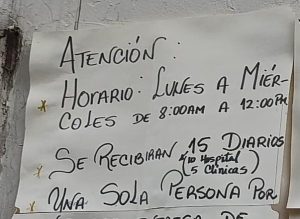 ATENCIÓN:
* HORARIO: LUNES A MIÉR-
COLES DE 8:00AM A 12:00PM
* SE RECIBIRAN 15 DIARIOS
(10 Hospital
5 Clinicas)
* UNA SOLA PERSONA POR